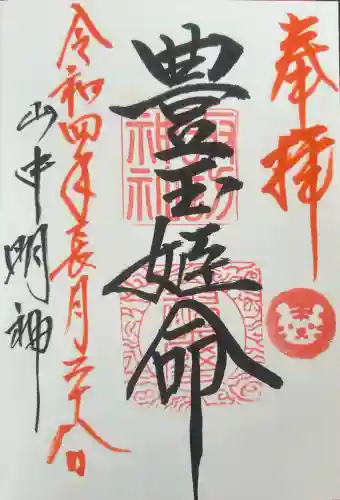 奉拝
豊玉姫命
令和四年長月二十八日
山中明神